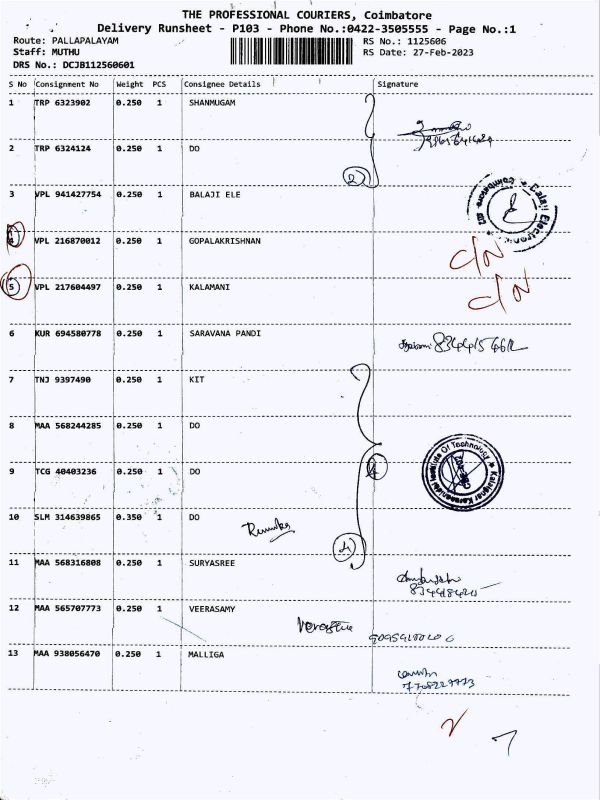 THE PROFESSIONAL COURIERS, Coimbatore
Delivery Runsheet - P103 - Phone No.:0422-3505555 - Page No.:1
Route: PALLAPALAYAM RS No.: 1125606
Staff: MUTHU RS Date: 27-Feb-2023
DRS No.: DCJB112560601
S No Consignment No Weight PCS Consignee Details Signature
1 TRP 6323902 0.250 1 SHANMUGAM
2 TRP 6324124 0.250 1 DO
2
3 VPL 941427754 0.250 1 BALAJI ELE
Balaji Electronics * Coimbatore
4 VPL 216870012 0.250 1 GOPALAKRISHNAN
C/N
5 VPL 217604497 0.250 1 KALAMANI
C/N
6 KUR 694580778 0.250 1 SARAVANA PANDI
7 TNJ 9397490 0.250 1 KIT
8 MAA 568244285 0.250 1 DO
9 TCG 40403236 0.250 1 DO
Kalaignar Karunanidhi Institute Of Technology
10 SLM 314639865 0.350 1 DO
Renuka
4
11 MAA 568316808 0.250 1 SURYASREE
12 MAA 565707773 0.250 1 VEERASAMY
13 MAA 938056470 0.250 1 MALLIGA